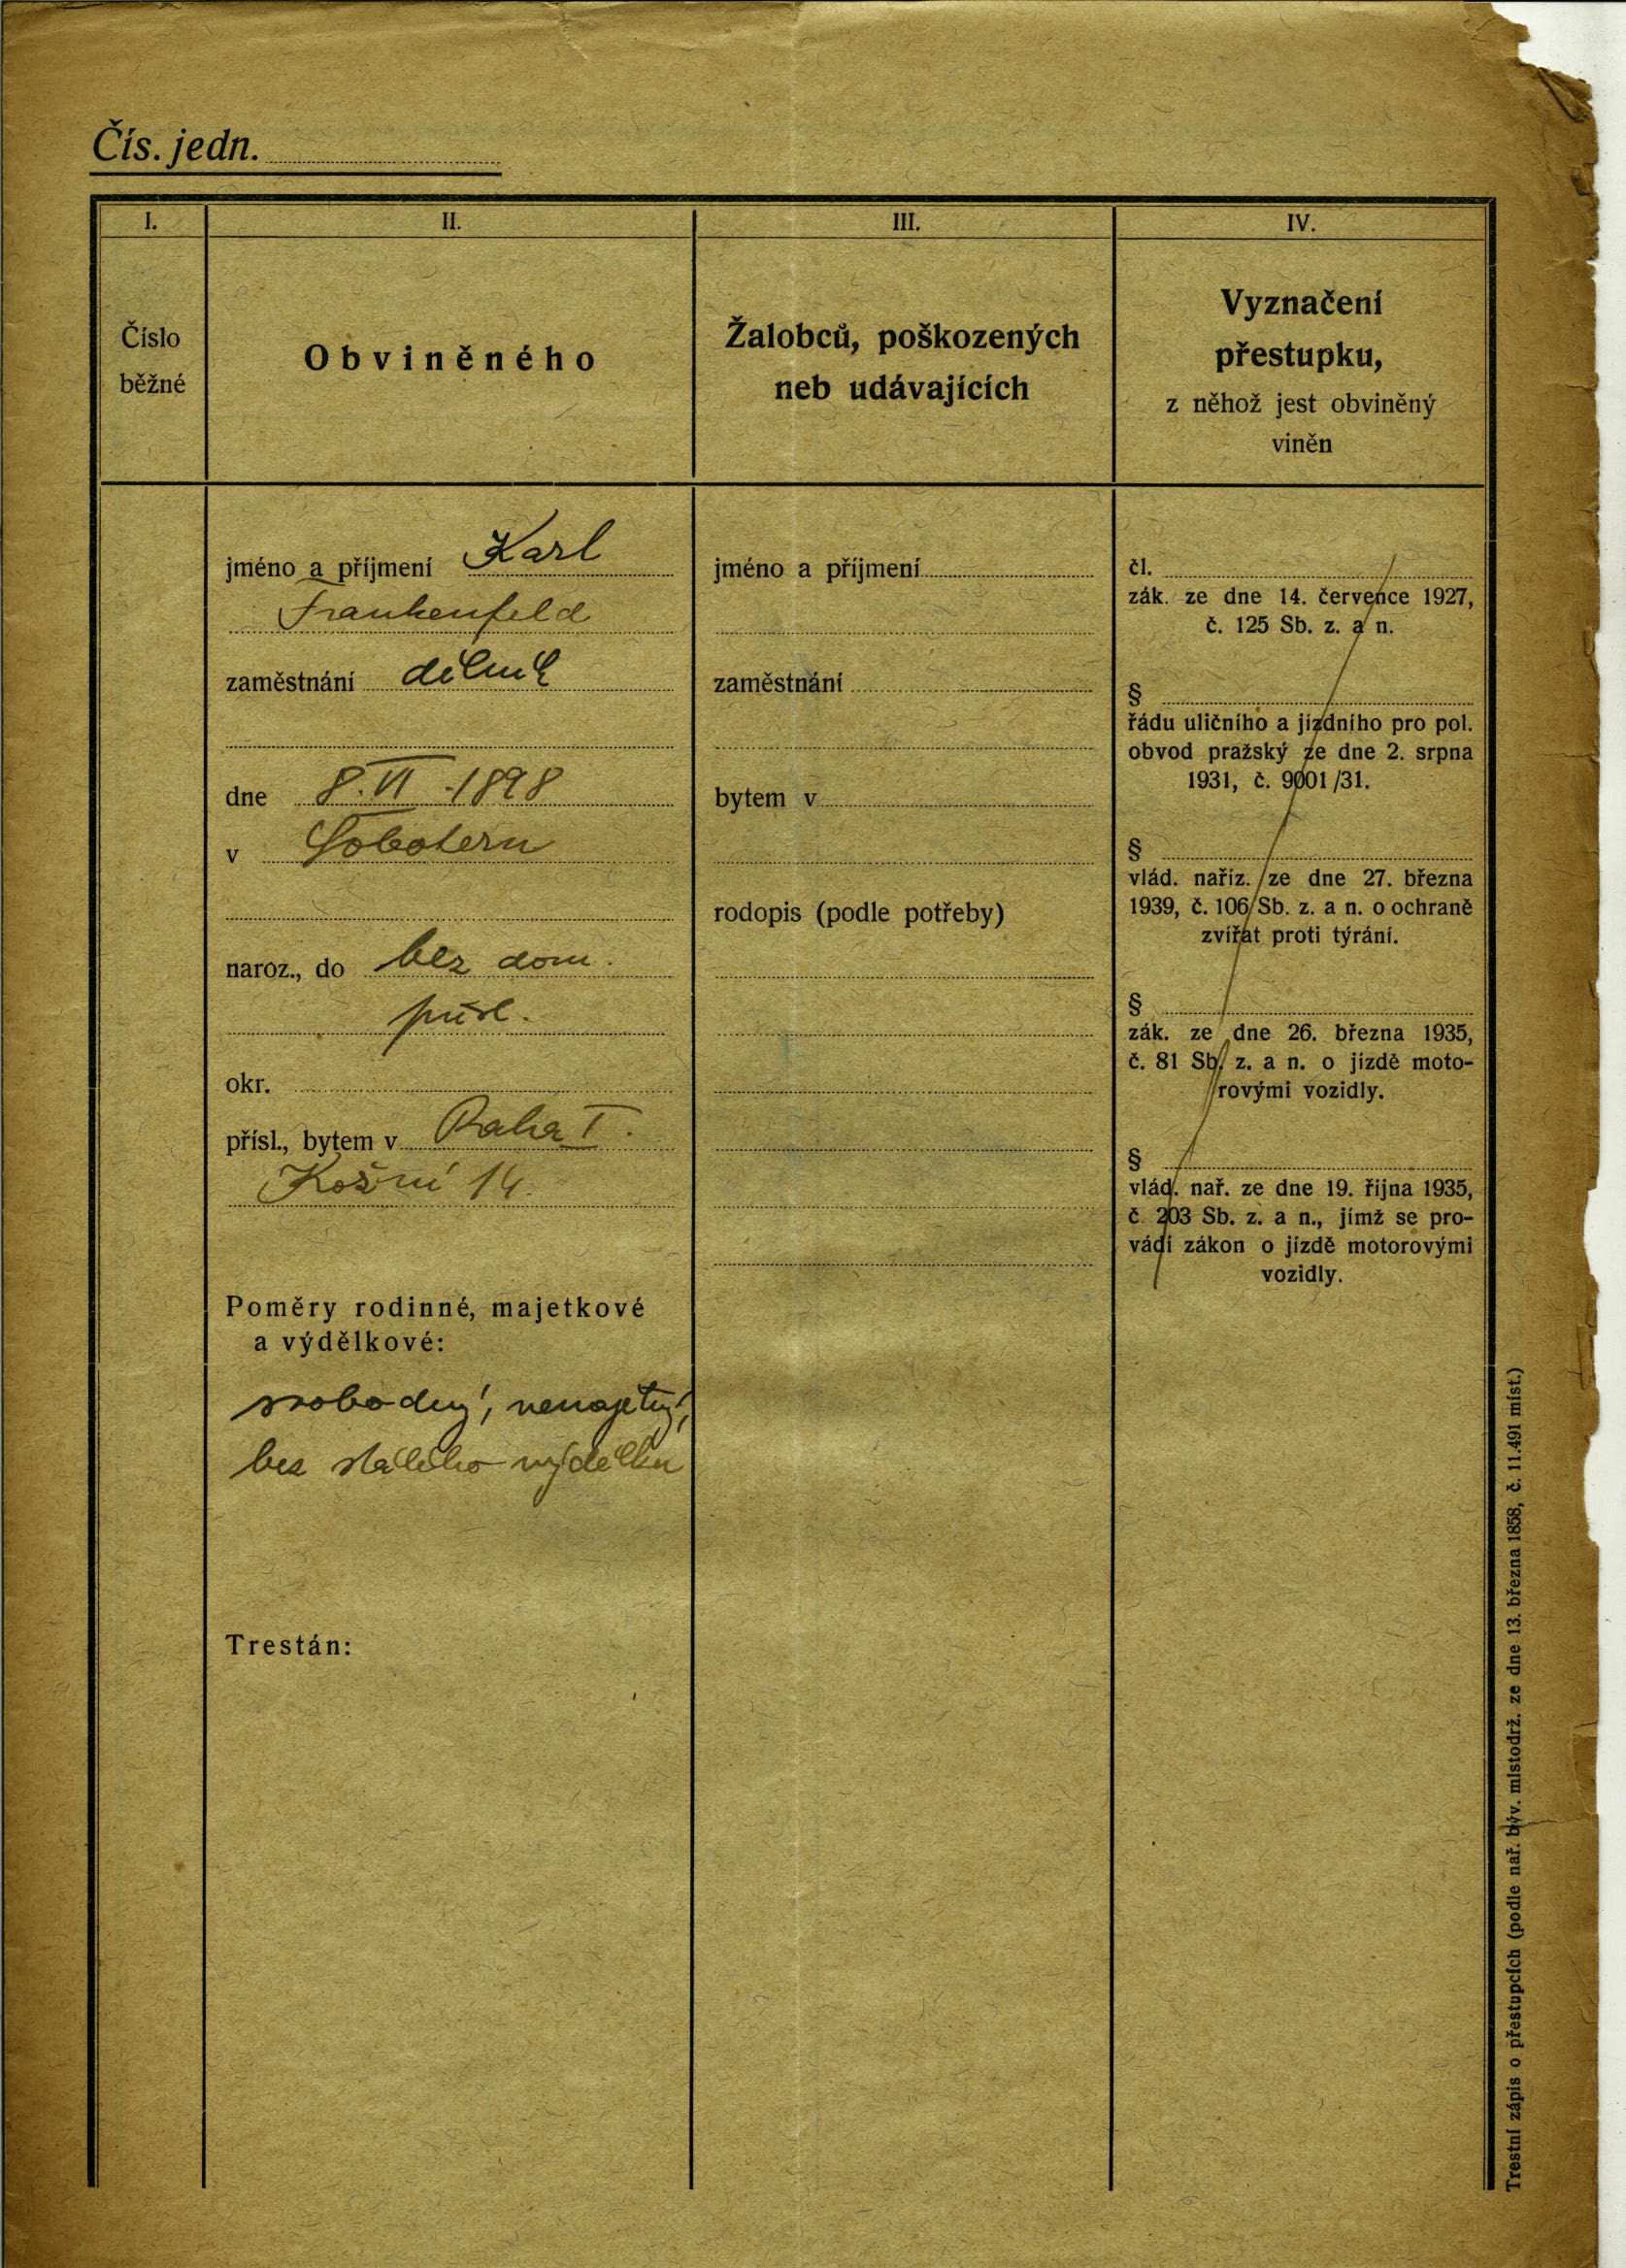 Čís. jedn.
I.
Číslo
běžné
II.
Obviněného
III.
Žalobců, poškozených
neb udávajících
IV.
Vyznačení
přestupku,
z něhož jest obviněný
viněn
jméno a příjmení Karl
Frankenfeld
zaměstnání dělník
dne 8. VI. 1898
v Sobotern
naroz., do bez dom.
přísl.
okr.
přísl., bytem v Praha I.
Kožní 14.
Poměry rodinné, majetkové
a výdělkové:
svobodný, nemajetný,
bez stálého výdělku
Trestán:
jméno a příjmení
zaměstnání
bytem v
rodopis (podle potřeby)
čl.
zák. ze dne 14. července 1927,
č. 125 Sb. z. a n.
§
řádu uličního a jízdního pro pol.
obvod pražský ze dne 2. srpna
1931, č. 9001/31.
§
vlád. naříz. ze dne 27. března
1939, č. 106 Sb. z. a n. o ochraně
zvířat proti týrání.
§
zák. ze dne 26. března 1935,
č. 81 Sb. z. a n. o jízdě moto-
rovými vozidly.
§
vlád. nař. ze dne 19. října 1935,
č. 203 Sb. z. a n., jímž se pro-
vádí zákon o jízdě motorovými
vozidly.
Trestní zápis o přestupcích (podle nař. býv. místodrž. ze dne 13. března 1858, č. 11.491 míst.)